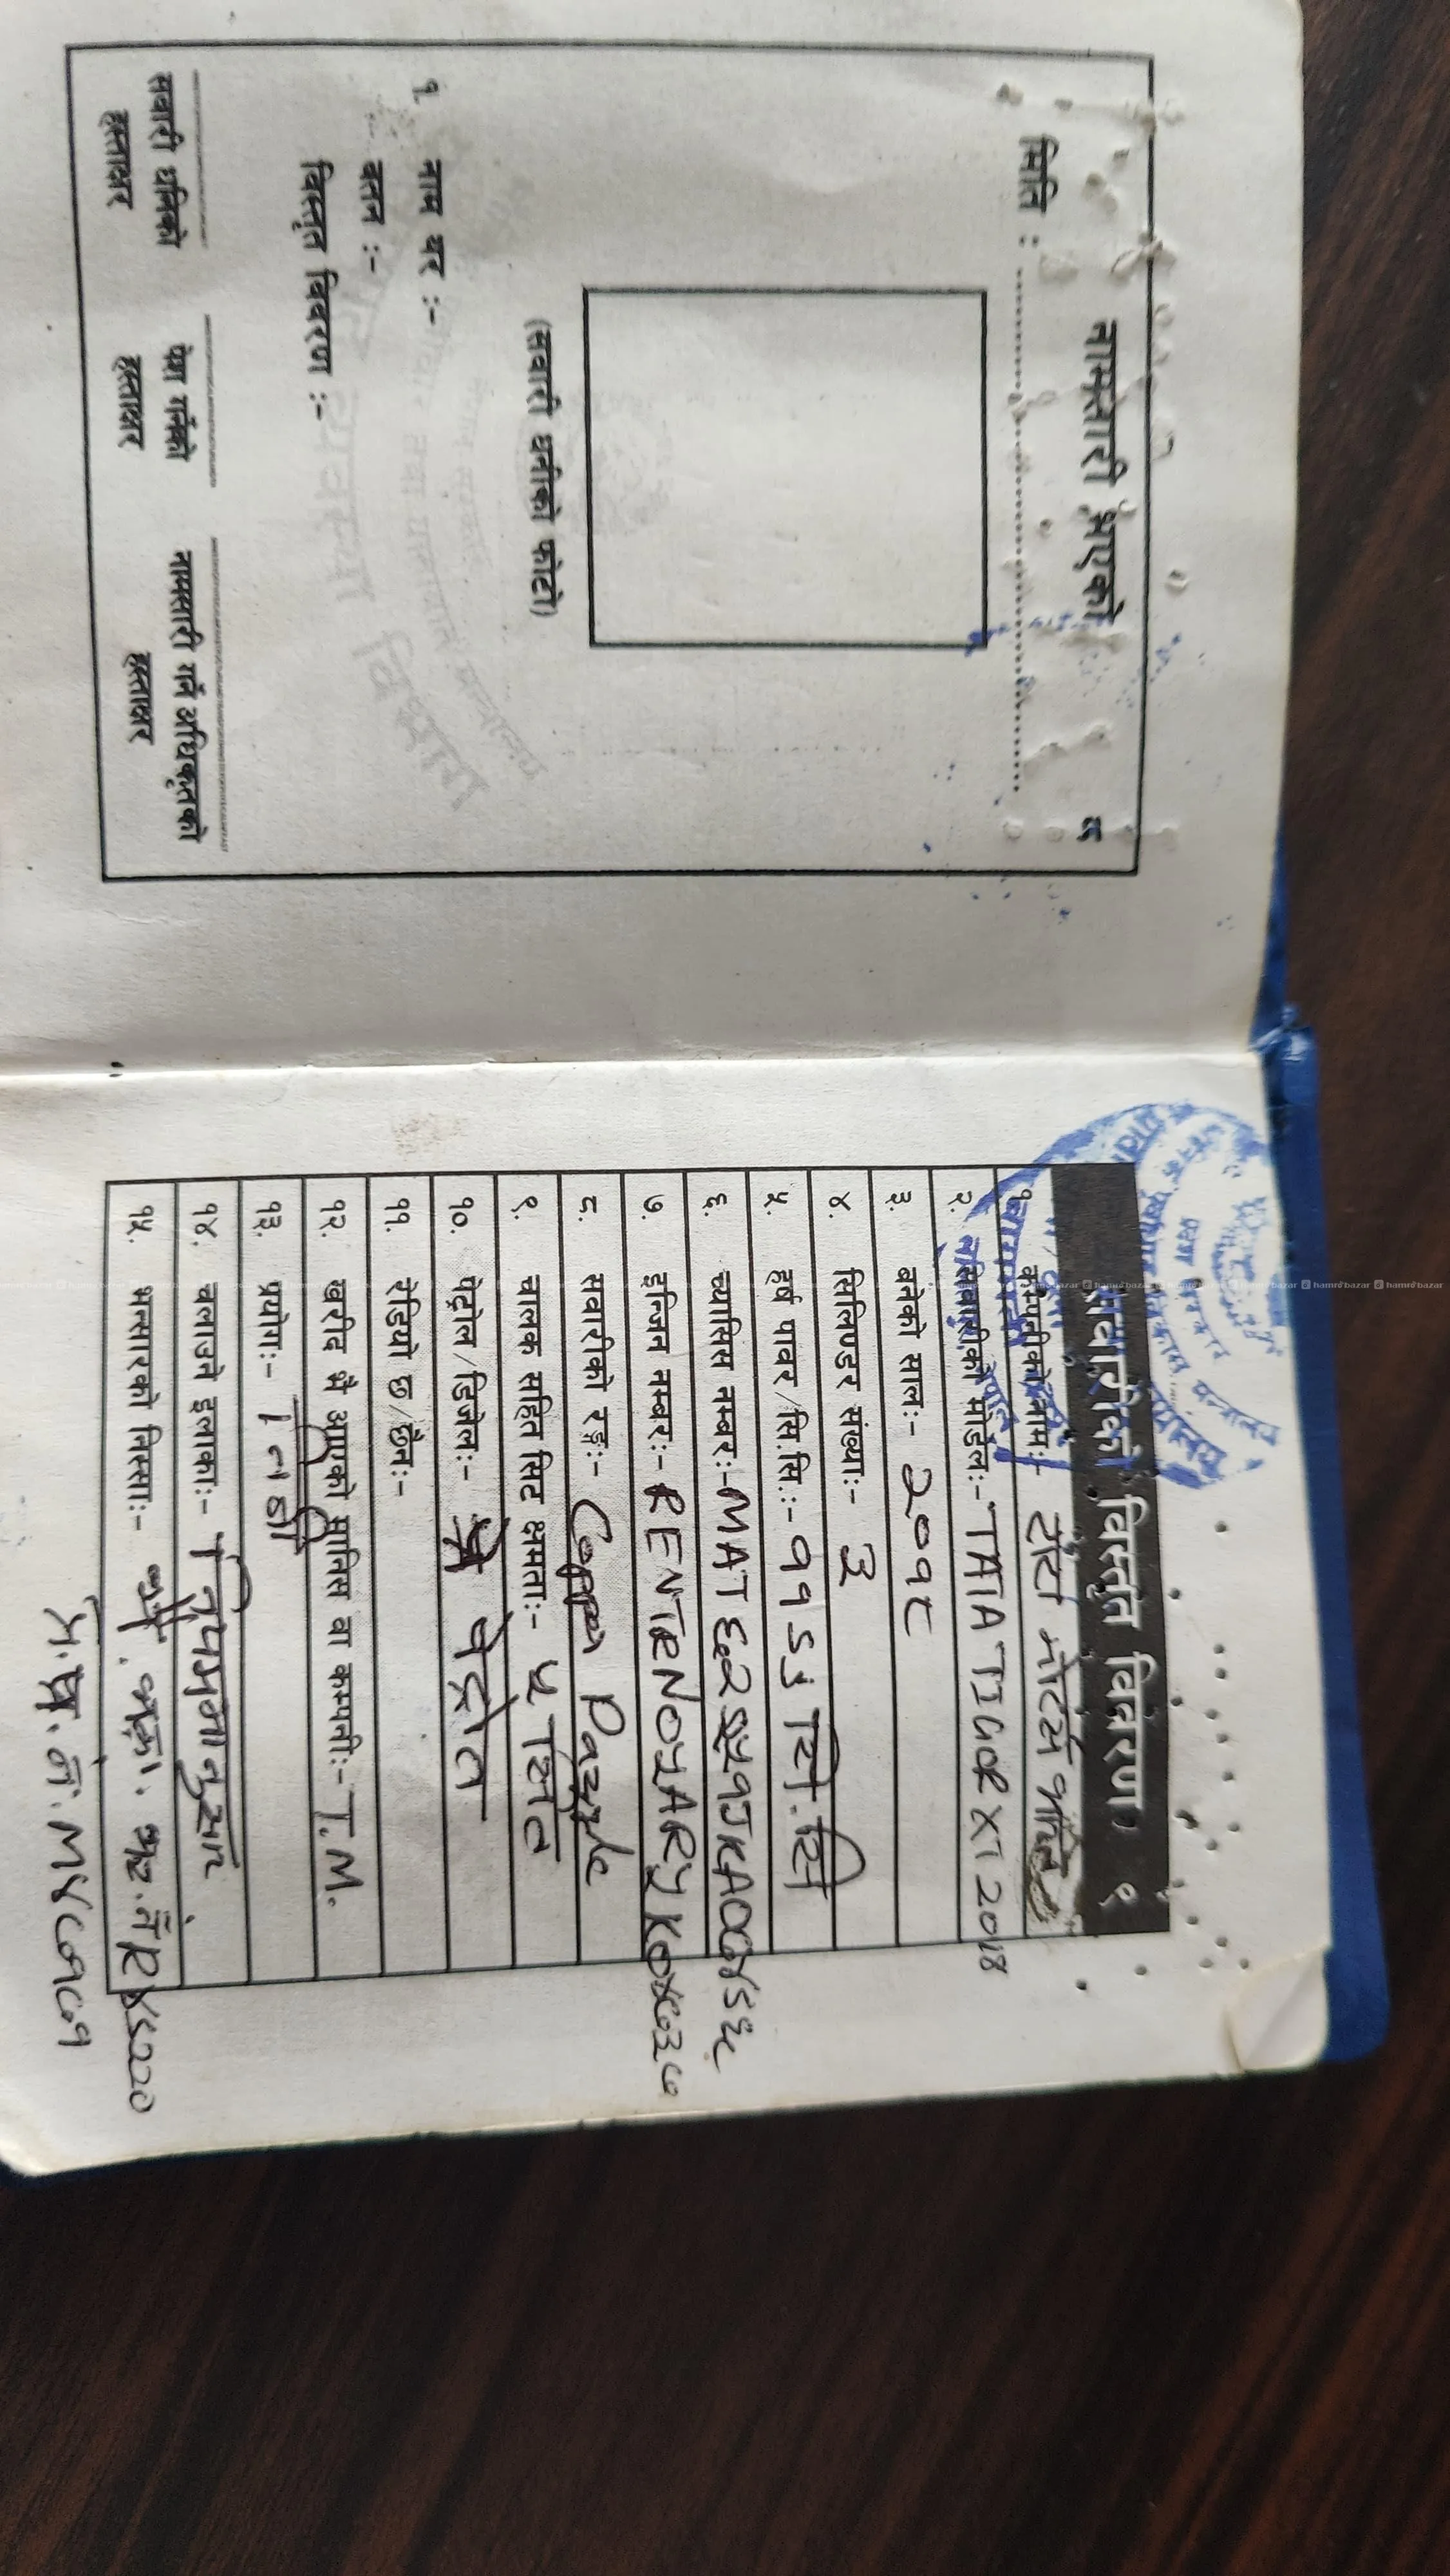 नामसारी भएको ८
मिति :
(सवारी धनीको फोटो)
१. नाम थर :-
वतन :-
विस्तृत विवरण :-
सवारी धनिको हस्ताक्षर
पेश गर्नेको हस्ताक्षर
नामसारी गर्ने अधिकृतको हस्ताक्षर
सवारीको विस्तृत विवरण ९
१. कम्पनीको नामः- टाटा मोटर्स
२. सवारीको मोडेलः- TATA TIGOR XT 2018
३. बनेको सालः- २०१८
४. सिलिण्डर संख्याः- 3
५. हर्ष पावर/सि.सि.:- सि.सि
६. च्यासिस नम्बरः-
७. इन्जिन नम्बरः-
८. सवारीको रङ्गः- Copper Dazzle
९. चालक सहित सिट क्षमताः- ५ सिट
१०. पेट्रोल/डिजेलः- पेट्रोल
११. रेडियो छ/छैनः-
१२. खरीद भै आएको मानिस वा कम्पनीः- T.M.
१३. प्रयोगः- निजी
१४. चलाउने इलाकाः- नियमानुसार
१५. भन्सारको निस्साः-
hamrobazar hamrobazar hamrobazar